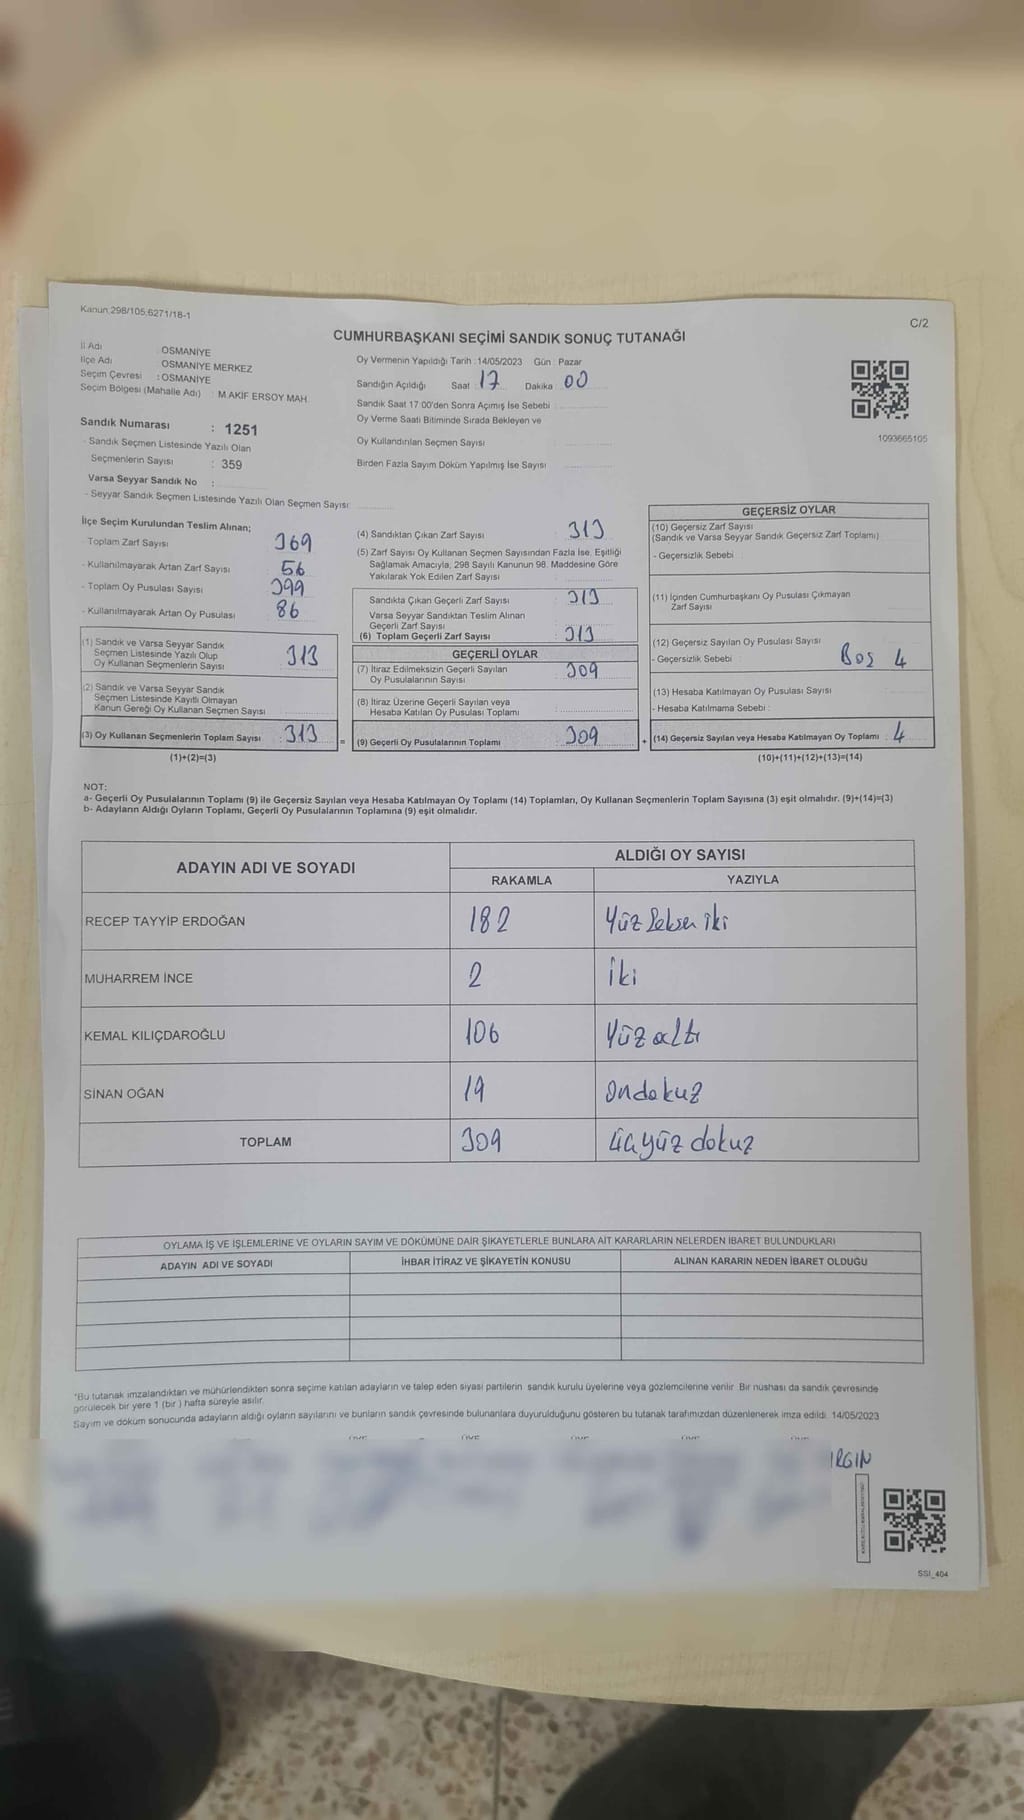 Kanun.298/105.6271/18-1
C/2
CUMHURBAŞKANI SEÇİMİ SANDIK SONUÇ TUTANAĞI
İl Adı : OSMANİYE
İlçe Adı : OSMANİYE MERKEZ
Seçim Çevresi : OSMANİYE
Seçim Bölgesi (Mahalle Adı) : M.AKİF ERSOY MAH.
Sandık Numarası : 1251
- Sandık Seçmen Listesinde Yazılı Olan
Seçmenlerin Sayısı : 359
Varsa Seyyar Sandık No :
- Seyyar Sandık Seçmen Listesinde Yazılı Olan Seçmen Sayısı
Oy Vermenin Yapıldığı Tarih : 14/05/2023 Gün : Pazar
Sandığın Açıldığı Saat : 17 Dakika : 00
Sandık Saat 17:00'den Sonra Açımış İse Sebebi :
Oy Verme Saati Bitiminde Sırada Bekleyen ve
Oy Kullandırılan Seçmen Sayısı
Birden Fazla Sayım Döküm Yapılmış İse Sayısı
1093665105
İlçe Seçim Kurulundan Teslim Alınan;
- Toplam Zarf Sayısı 369
- Kullanılmayarak Artan Zarf Sayısı 56
- Toplam Oy Pusulası Sayısı 399
- Kullanılmayarak Artan Oy Pusulası 86
(1) Sandık ve Varsa Seyyar Sandık
Seçmen Listesinde Yazılı Olup
Oy Kullanan Seçmenlerin Sayısı 313
(2) Sandık ve Varsa Seyyar Sandık
Seçmen Listesinde Kayıtlı Olmayan
Kanun Gereği Oy Kullanan Seçmen Sayısı
(3) Oy Kullanan Seçmenlerin Toplam Sayısı : 313 =
(1)+(2)=(3)
(4) Sandıktan Çıkan Zarf Sayısı : 313
(5) Zarf Sayısı Oy Kullanan Seçmen Sayısından Fazla İse, Eşitliği
Sağlamak Amacıyla, 298 Sayılı Kanunun 98. Maddesine Göre
Yakılarak Yok Edilen Zarf Sayısı
Sandıkta Çıkan Geçerli Zarf Sayısı : 313
Varsa Seyyar Sandıktan Teslim Alınan
Geçerli Zarf Sayısı
(6) Toplam Geçerli Zarf Sayısı : 313
GEÇERLİ OYLAR
(7) İtiraz Edilmeksizin Geçerli Sayılan
Oy Pusulalarının Sayısı : 309
(8) İtiraz Üzerine Geçerli Sayılan veya
Hesaba Katılan Oy Pusulası Toplamı
(9) Geçerli Oy Pusulalarının Toplamı : 309 +
GEÇERSİZ OYLAR
(10) Geçersiz Zarf Sayısı
(Sandık ve Varsa Seyyar Sandık Geçersiz Zarf Toplamı)
- Geçersizlik Sebebi
(11) İçinden Cumhurbaşkanı Oy Pusulası Çıkmayan
Zarf Sayısı
(12) Geçersiz Sayılan Oy Pusulası Sayısı
- Geçersizlik Sebebi Boş 4
(13) Hesaba Katılmayan Oy Pusulası Sayısı
- Hesaba Katılmama Sebebi :
(14) Geçersiz Sayılan veya Hesaba Katılmayan Oy Toplamı : 4
(10)+(11)+(12)+(13)=(14)
NOT:
a- Geçerli Oy Pusulalarının Toplamı (9) ile Geçersiz Sayılan veya Hesaba Katılmayan Oy Toplamı (14) Toplamları, Oy Kullanan Seçmenlerin Toplam Sayısına (3) eşit olmalıdır. (9)+(14)=(3)
b- Adayların Aldığı Oyların Toplamı, Geçerli Oy Pusulalarının Toplamına (9) eşit olmalıdır.
ADAYIN ADI VE SOYADI ALDIĞI OY SAYISI
RAKAMLA YAZIYLA
RECEP TAYYİP ERDOĞAN 182 Yüz Seksen iki
MUHARREM İNCE 2 iki
KEMAL KILIÇDAROĞLU 106 Yüz altı
SİNAN OĞAN 19 Ondokuz
TOPLAM 309 üçyüz dokuz
OYLAMA İŞ VE İŞLEMLERİNE VE OYLARIN SAYIM VE DÖKÜMÜNE DAİR ŞİKAYETLERLE BUNLARA AİT KARARLARIN NELERDEN İBARET BULUNDUKLARI
ADAYIN ADI VE SOYADI İHBAR İTİRAZ VE ŞİKAYETİN KONUSU ALINAN KARARIN NEDEN İBARET OLDUĞU
*Bu tutanak imzalandıktan ve mühürlendikten sonra seçime katılan adayların ve talep eden siyasi partilerin sandık kurulu üyelerine veya gözlemcilerine verilir. Bir nushası da sandık çevresinde
görülecek bir yere 1 (bir ) hafta süreyle asılır.
Sayım ve döküm sonucunda adayların aldığı oyların sayılarını ve bunların sandık çevresinde bulunanlara duyurulduğunu gösteren bu tutanak tarafımızdan düzenlenerek imza edildi. 14/05/2023
IRGIN
SSI_404